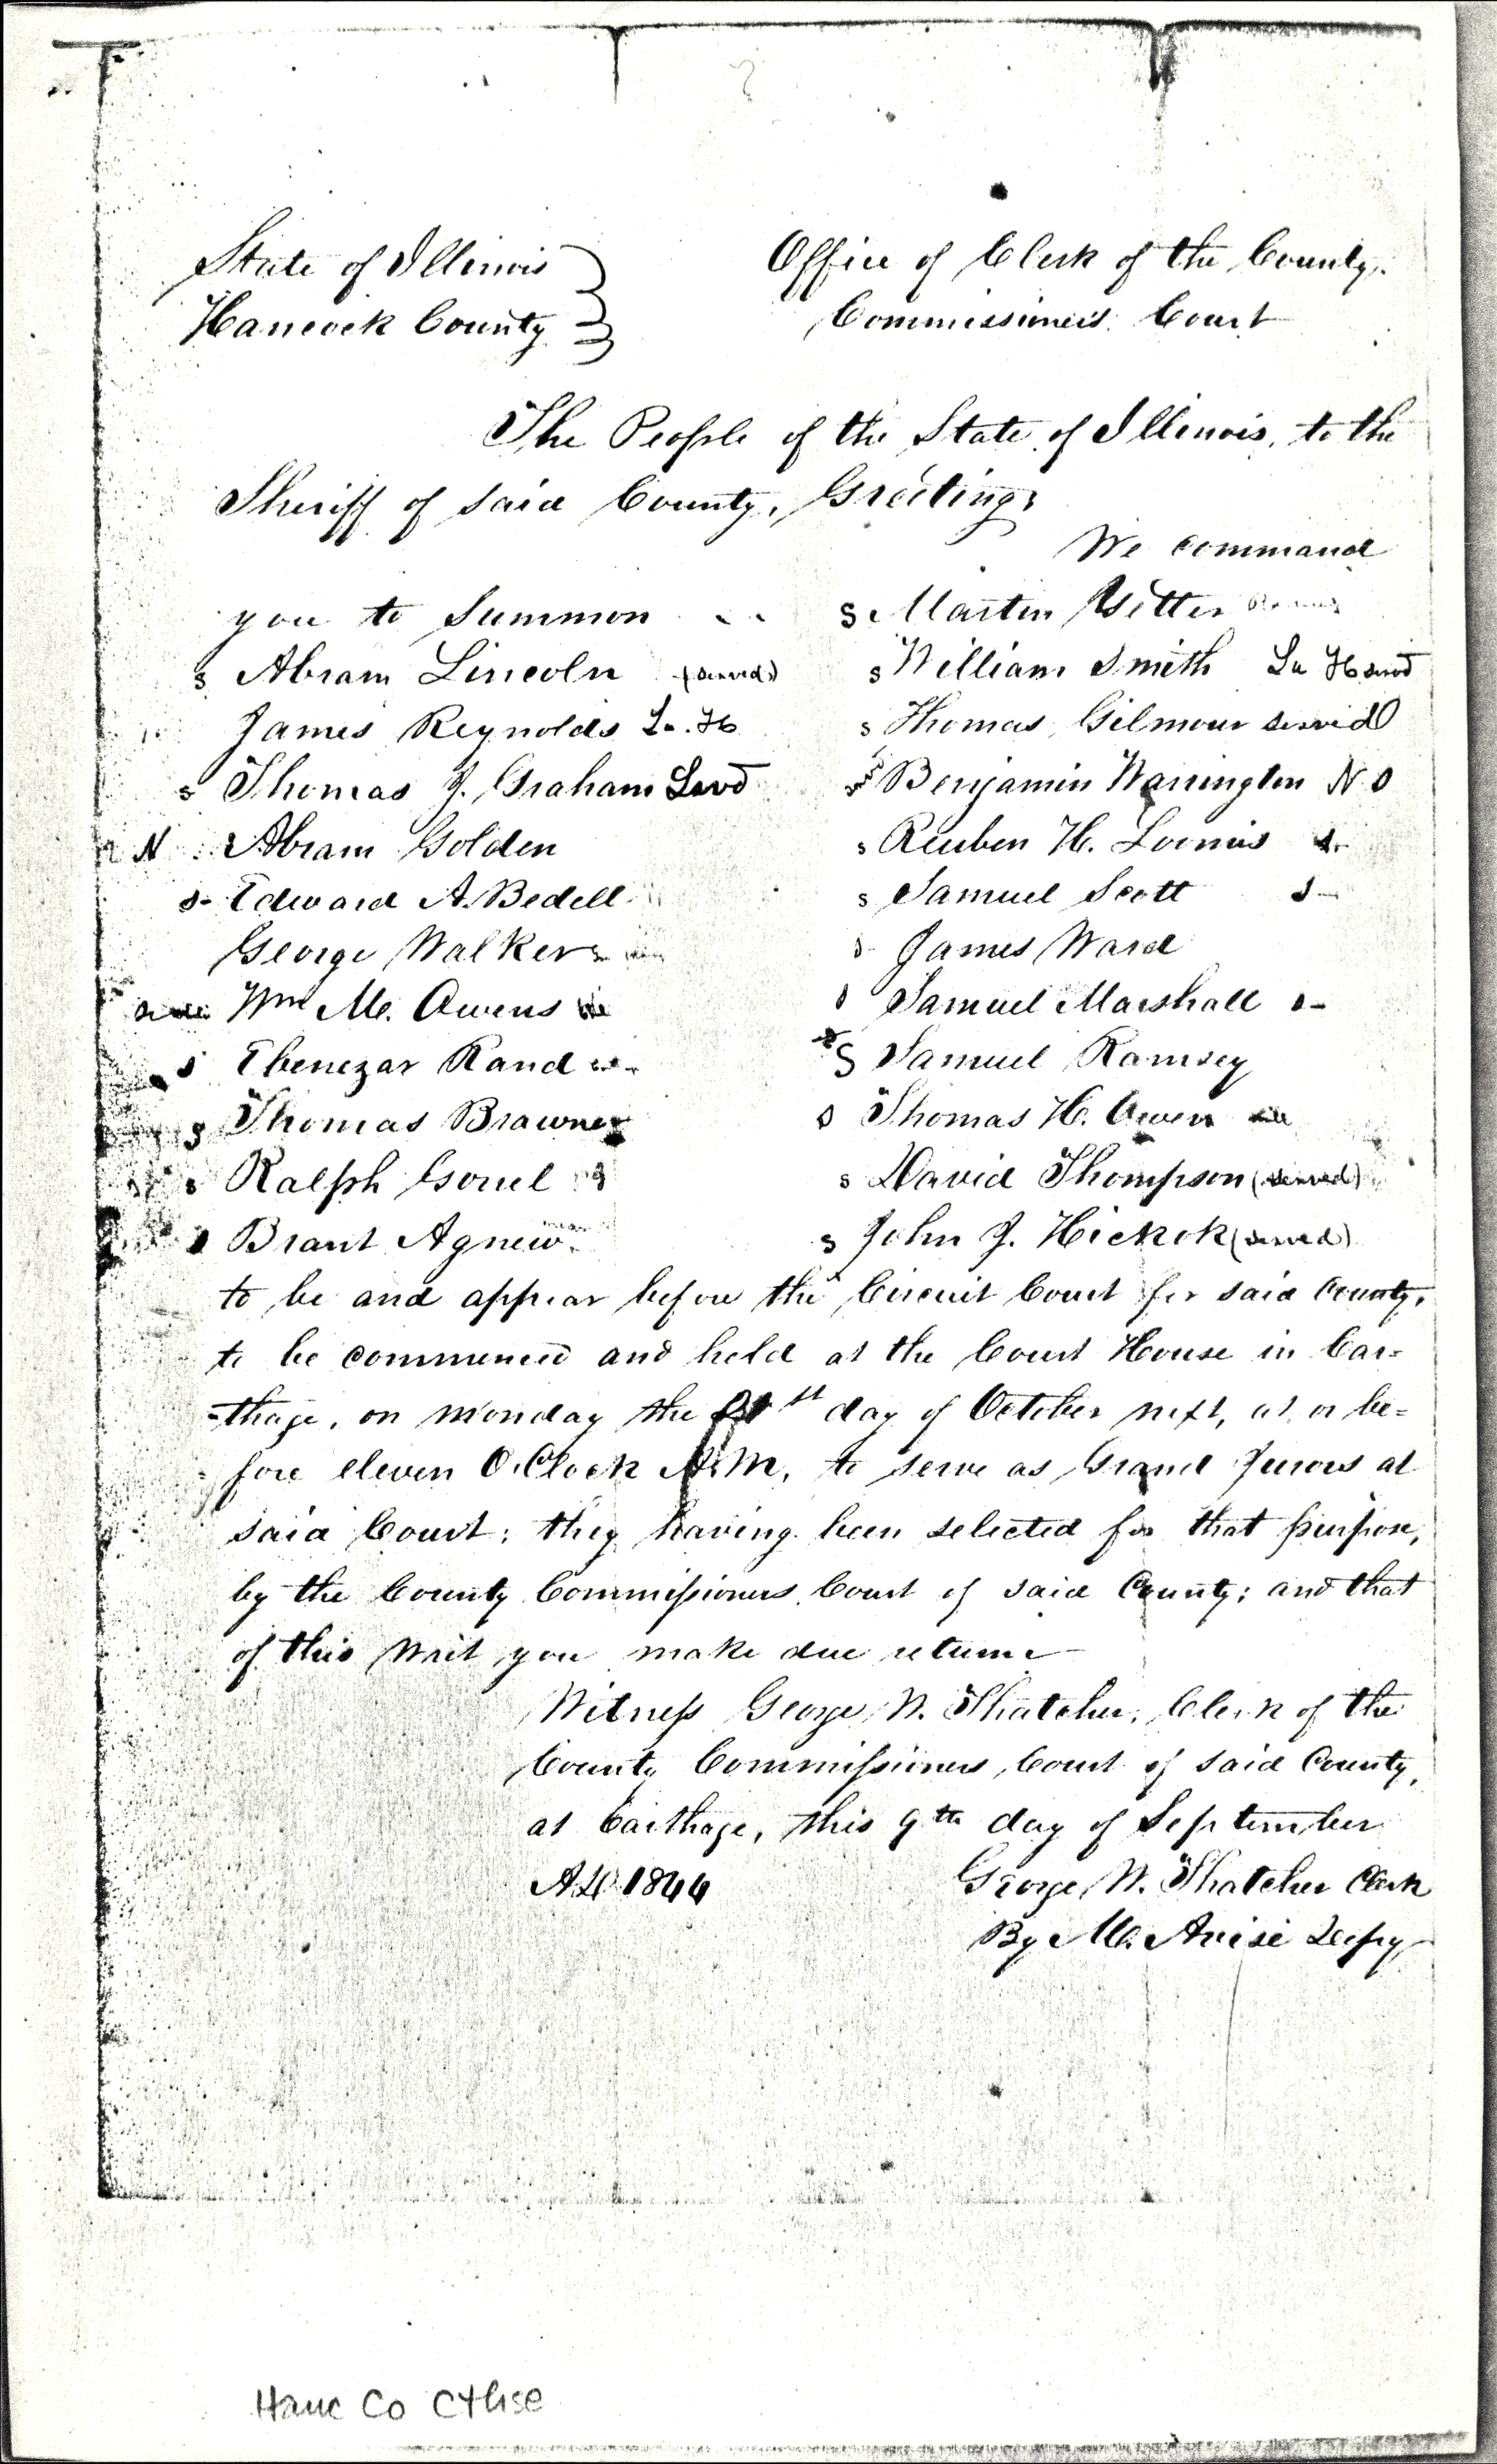 State of Illinois
Hancock County
Office of Clerk of the County
Commissioners Court
The People of the State of Illinois, to the
Sheriff of said County, Greeting;
We command
you to Summon
s Abram Lincoln (served)
James Reynolds La. H
s Thomas J. Graham Servd
N Abram Golden
s- Edward A. Bedell
George Walker
Wm M. Owens
s Ebenezar Rand
s Thomas Brawner
s Ralph Gorrel
s Brant Agnew
S Martin Yetter
s William Smith La H servd
s Thomas Gilmour served
Benjamin Warrington N S
s Reuben H. Loomis s-
s Samuel Scott s-
s- James Ward
s Samuel Marshall s-
S Samuel Ramsey
s Thomas H. Owen
s David Thompson (served)
s John J. Hickok (served)
to be and appear before the Circuit Court for said County,
to be commenced and held at the Court House in Car=
=thage, on Monday the 21st day of October next, at or be=
fore eleven O.Clock A.M, to serve as Grand Jurors at
said Court; they having been selected for that purpose,
by the County Commissioners Court of said County; and that
of this Writ you make due return
Witness George W. Thatcher, Clerk of the
County Commissioners Court of said County,
at Carthage, this 9th day of September
AD 1844
George W. Thatcher Clerk
By M. Avise Depy
Hanc Co Cthse